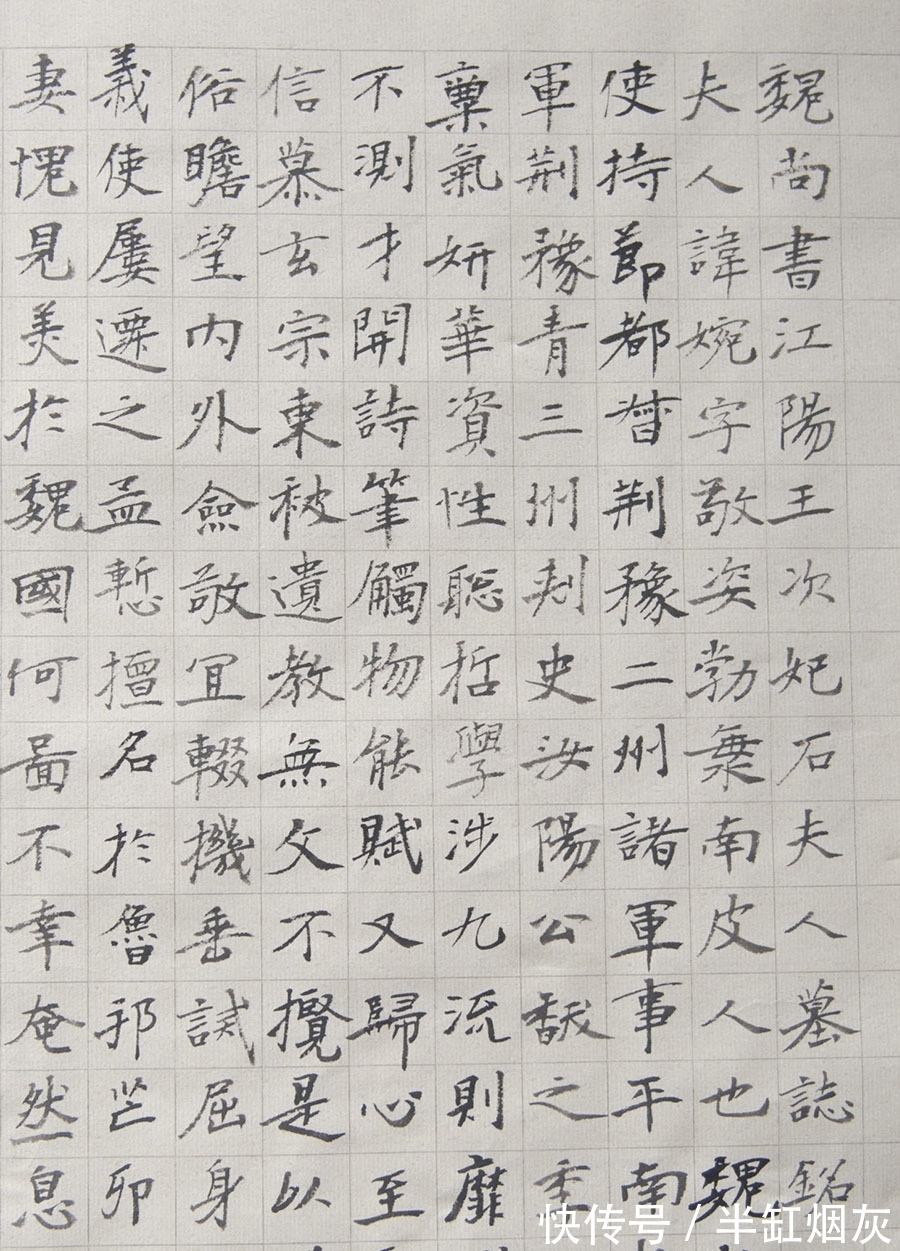 魏尚書江陽王次妃石夫人墓誌銘
夫人諱婉字敬姿勃海南皮人也魏
使持節都督荆豫二州諸軍事平南
軍荆豫青三州刾史汝陽公馛之季
稟氣妍華資性聡哲學涉九流則靡
不測才開詩筆觸物能賦又歸心至
信慕玄宗東被遺教無文不攬是以
俗瞻望内外僉敬宜輟機垂試屈身
義使屢遷之孟慙擅名於魯邦芒卯
妻愧見美於魏國何啚不幸奄然一息
快传号 / 半缸烟灰